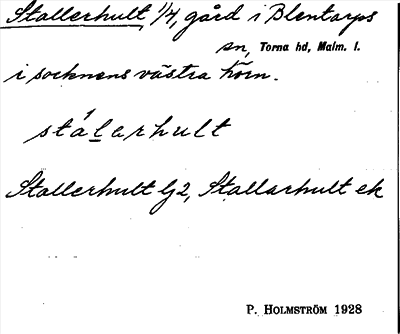 Stallerhult, 1/4, gård i Blentarps
sn, Torna hd, Malm. l.
i socknens västra hörn.
stálarhult
Stallerhult Lj 2, Stallarhult ek
P. HOLMSTRÖM 1928